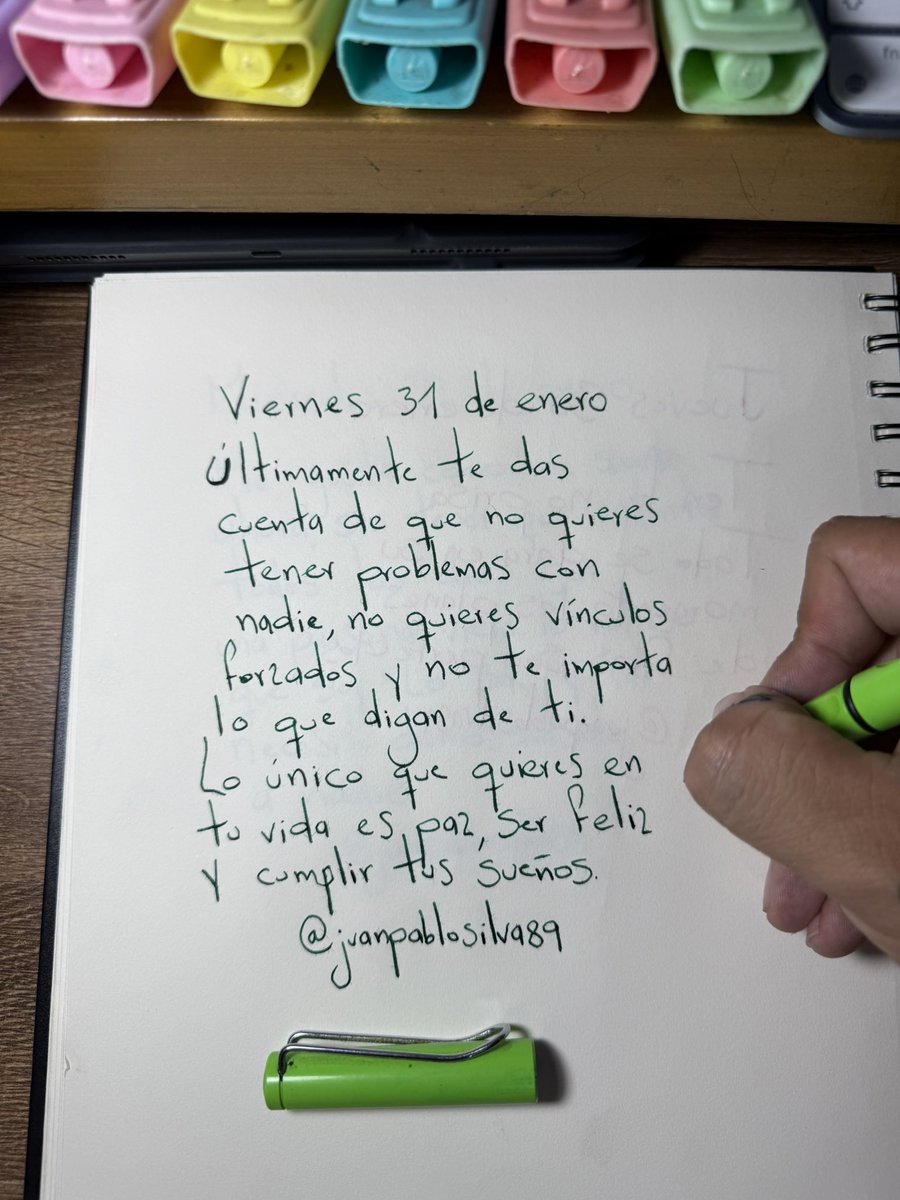 fn
Viernes 31 de enero
Últimamente te das
cuenta de que no quieres
tener problemas con
nadie, no quieres vínculos
forzados y no te importa
lo que digan de ti.
Lo único que quieres en
tu vida es paz, ser feliz
y cumplir tus sueños.
@juanpablosilva89